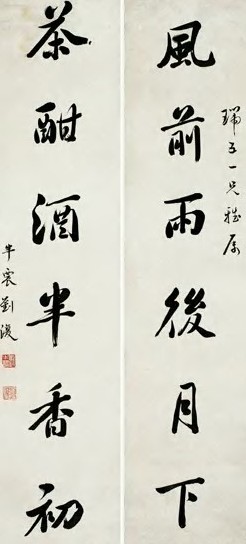 瑞五一兄雅属
風前雨後月下
茶酣酒半香初
半農劉復